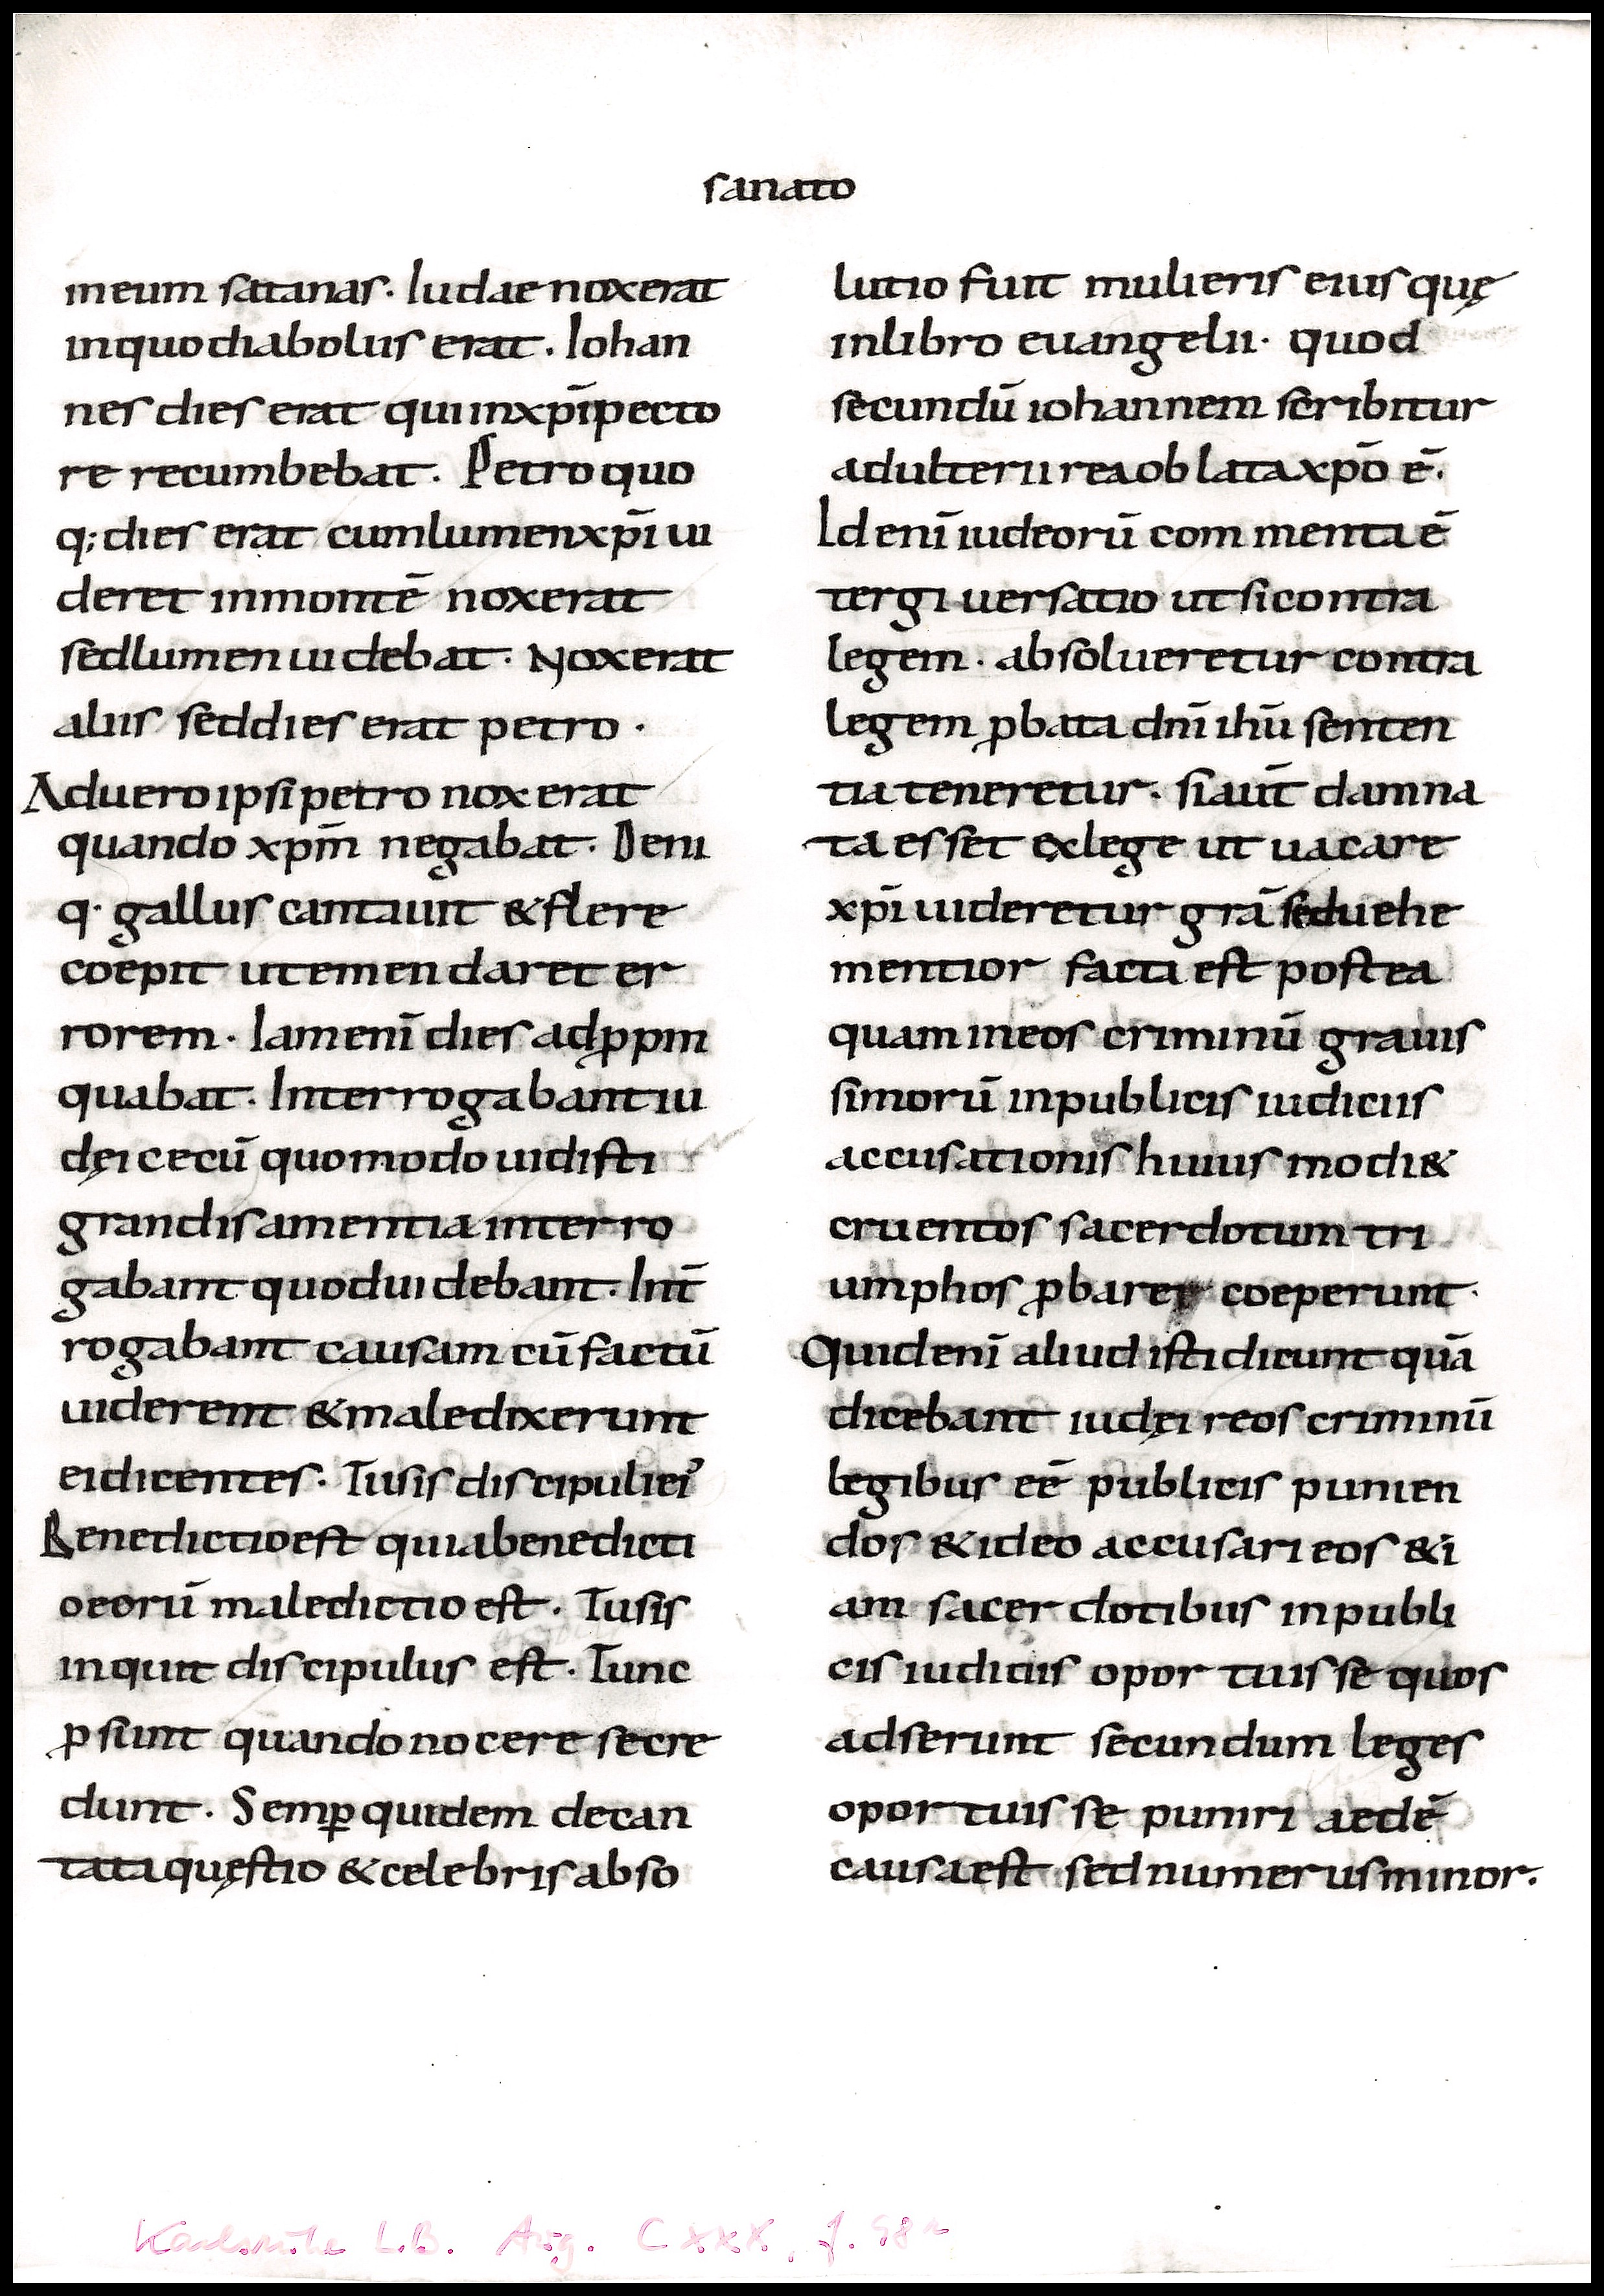 sanato
in eum satanas. Iudae nox erat
in quo diabolus erat. Iohan
nes dies erat qui in xp̄i pecto
re recumbebat. Petro quo
q; dies erat cum lumen xp̄i ui
deret in montē nox erat
sed lumen uidebat. Nox erat
aliis sed dies erat petro.
Aduero ipsi petro nox erat
quando xp̄m negabat. Deni
q· gallus cantauit & flere
coepit ut emendaret er
rorem. Iam enī dies adꝓpin
quabat. Interrogabant iu
dęi cecū quomodo uidisti
grandis amentia interro
gabant quod uidebant. Int̄
rogabant causam cū factū
uiderent & maledixerunt
ei dicentes. Tu sis discipuli ei᾽
Benedictio est quia benedicti
o eorū maledictio est. Tu sis
inquit discipulus est. Tunc
ꝓsunt quando nocere se cre
dunt. Semꝑ quidem decan
tata quęstio & celebris abso
lutio fuit mulieris eius quę
in libro euangelii· quod
secundū iohannem scribitur
adulterii rea oblata xp̄o ē.
Id enī iudeorū commenta ē
tergiuersatio ut si contra
legem. absolueretur contra
legem ꝓbata dn̄i ih̄u senten
tia teneretur. si aut̄ damna
ta esset ex lege ut uacare
xp̄i uideretur grā sed uehe
mentior facta est postea
quam in eos criminū grauis
simorū in publicis iudiciis
accusationis huius modi &
cruentos sacerdotum tri
umphos ꝓbare coeperunt.
Quid enī aliud isti dicunt quā
dicebant iudęi reos criminū
legibus eē publicis punien
dos & ideo accusari eos & i
am sacerdotibus in publi
cis iudiciis oportuisse quos
adserunt secundum leges
oportuisse puniri aedē
causa est sed numerus minor.
Karlsruhe L.B. Aug. CXXX, f. 98r